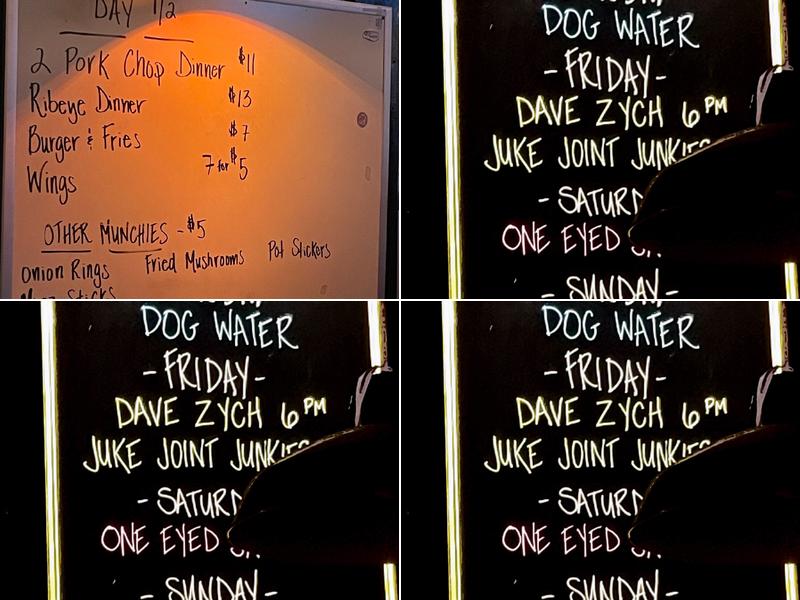 DAY 1/2
2 Pork Chop Dinner $11
Ribeye Dinner $13
Burger & Fries $7
Wings 7 for $5
OTHER MUNCHIES - $5
Onion Rings Fried Mushrooms Pot Stickers
Sticks
DOG WATER
- FRIDAY -
DAVE ZYCH 6 PM
JUKE JOINT JUNKIES
ONE EYED
- SUNDAY -
DOG WATER
- FRIDAY -
DAVE ZYCH 6 PM
JUKE JOINT JUNKIES
ONE EYED
- SUNDAY -
DOG WATER
- FRIDAY -
DAVE ZYCH 6 PM
JUKE JOINT JUNKIES
ONE EYED
- SUNDAY -